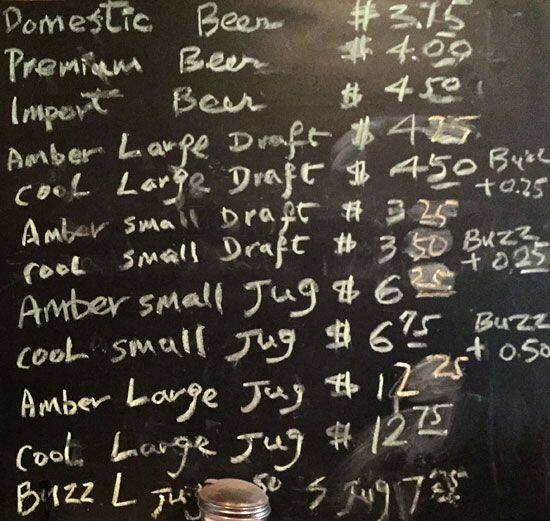 Domestic Beer $ 3.75
Premium Beer $ 4.00
Import Beer $ 4.50
Amber Large Draft $ 4 25
cool Large Draft $ 4 50 Buzz + 0.25
Amber small Draft $ 3 25
cool small Draft $ 3 50 Buzz + 0.25
Amber small Jug $ 6 25
cool small Jug $ 6 75 Buzz + 0.50
Amber Large Jug $ 12 25
Cool Large Jug $ 12 75
Buzz L Jug 50 S Jug 7